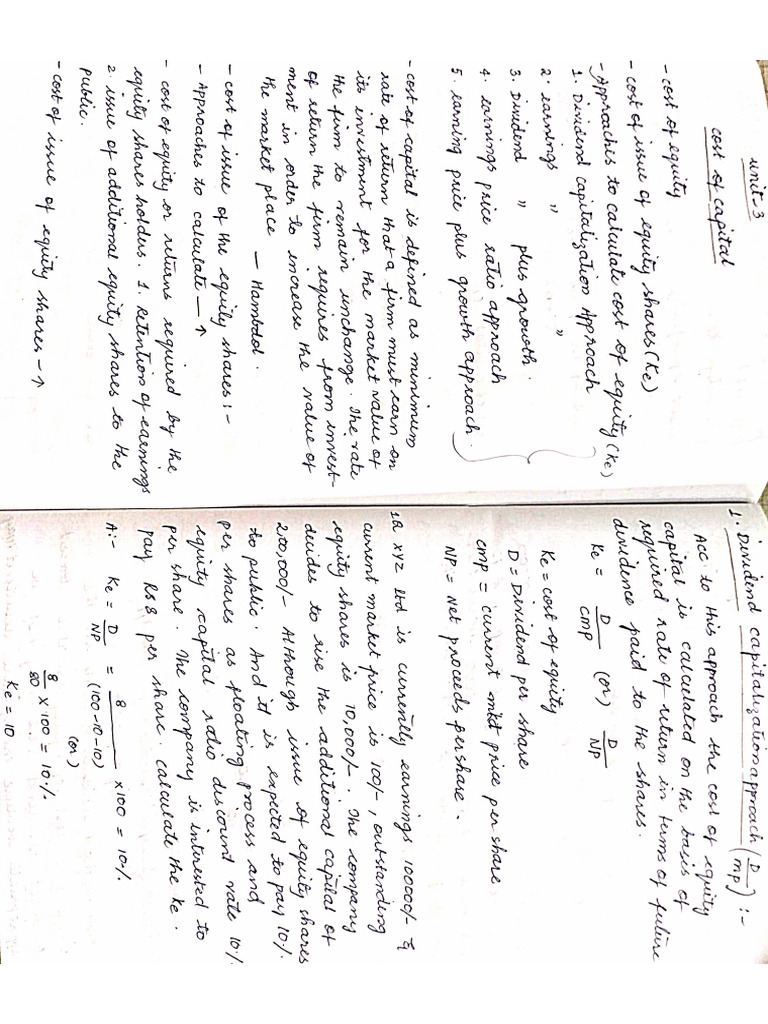 unit 3
cost of capital
- cost of equity
- cost of issue of equity shares (Ke)
- Approaches to calculate cost of equity (Ke)
1. Dividend capitalization Approach
2. earnings " "
3. Dividend " plus growth.
4. earnings price ratio approach
5. earning price plus growth approach.
- cost of capital is defined as minimum
rate of return that a firm must earn on
its investment for the market value of
the firm to remain unchange. The rate
of return the firm requires from invest-
ment in order to increase the value of
the market place
- cost of issue of the equity shares :-
- Approaches to calculate — ↑
- cost of equity or returns required by the
equity shares holders. 1. Retention of earnings
2. issue of additional equity shares to the
public.
- cost of issue of equity shares - ↑
1. Dividend capitalization approach (D/MP) :-
Acc to this approach the cost of equity
capital is calculated on the basis of
required rate of return in terms of future
dividence paid to the shares.
Ke = D/CMP (or) D/NP
Ke = cost of equity
D = Dividend per share
CMP = current mkt price per share
NP = Net proceeds per share.
1Q XYZ ltd is currently earnings 10000/- &
current market price is 100/-, outstanding
equity shares is 10,000/-. The company
decides to rise the additional capital of
250,000/- Although issue of equity shares
to public. And it is expected to pay 10%
per shares as floating process and
equity capital ratio discount rate 10%
per share. The company is interested to
pay RS 8 per share. calculate the Ke.
A:- Ke = D/NP = 8/(100-10-10) × 100 = 10%
(or)
8/80 × 100 = 10%
Ke = 10